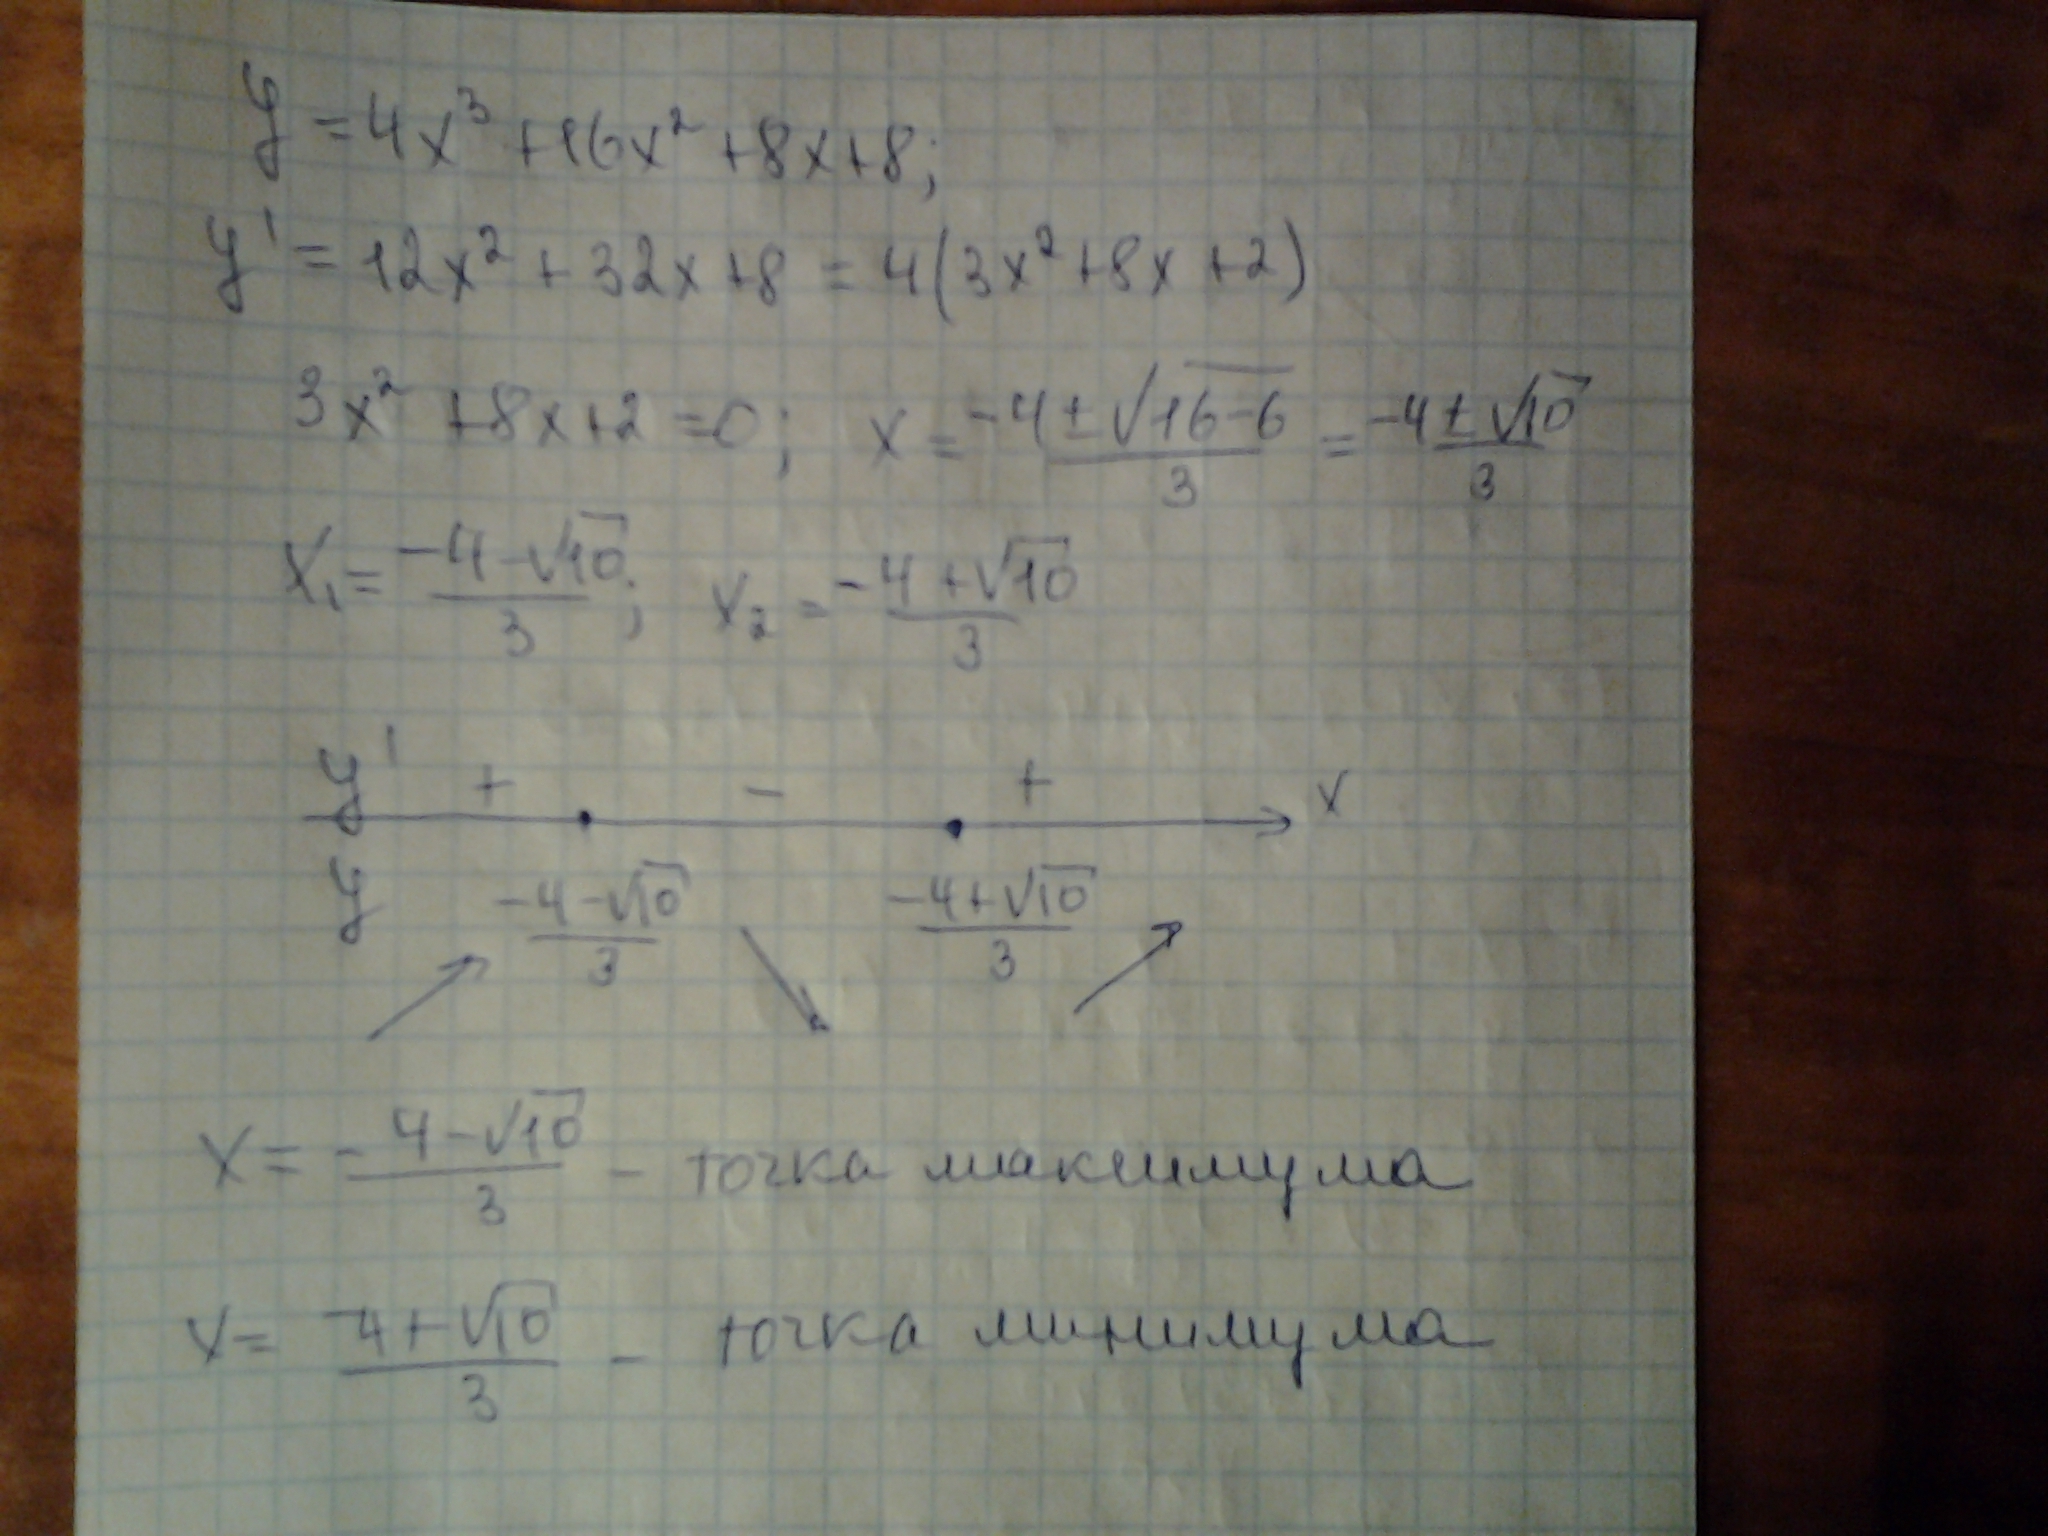 y = 4x³ + 16x² + 8x + 8;
y' = 12x² + 32x + 8 = 4(3x² + 8x + 2)
3x² + 8x + 2 = 0; x = (-4 ± √(16-6))/3 = (-4 ± √10)/3
x₁ = (-4 - √10)/3; x₂ = (-4 + √10)/3
y' + - + x
y (-4 - √10)/3 (-4 + √10)/3
x = (-4 - √10)/3 - точка максимума
x = (-4 + √10)/3 - точка минимума